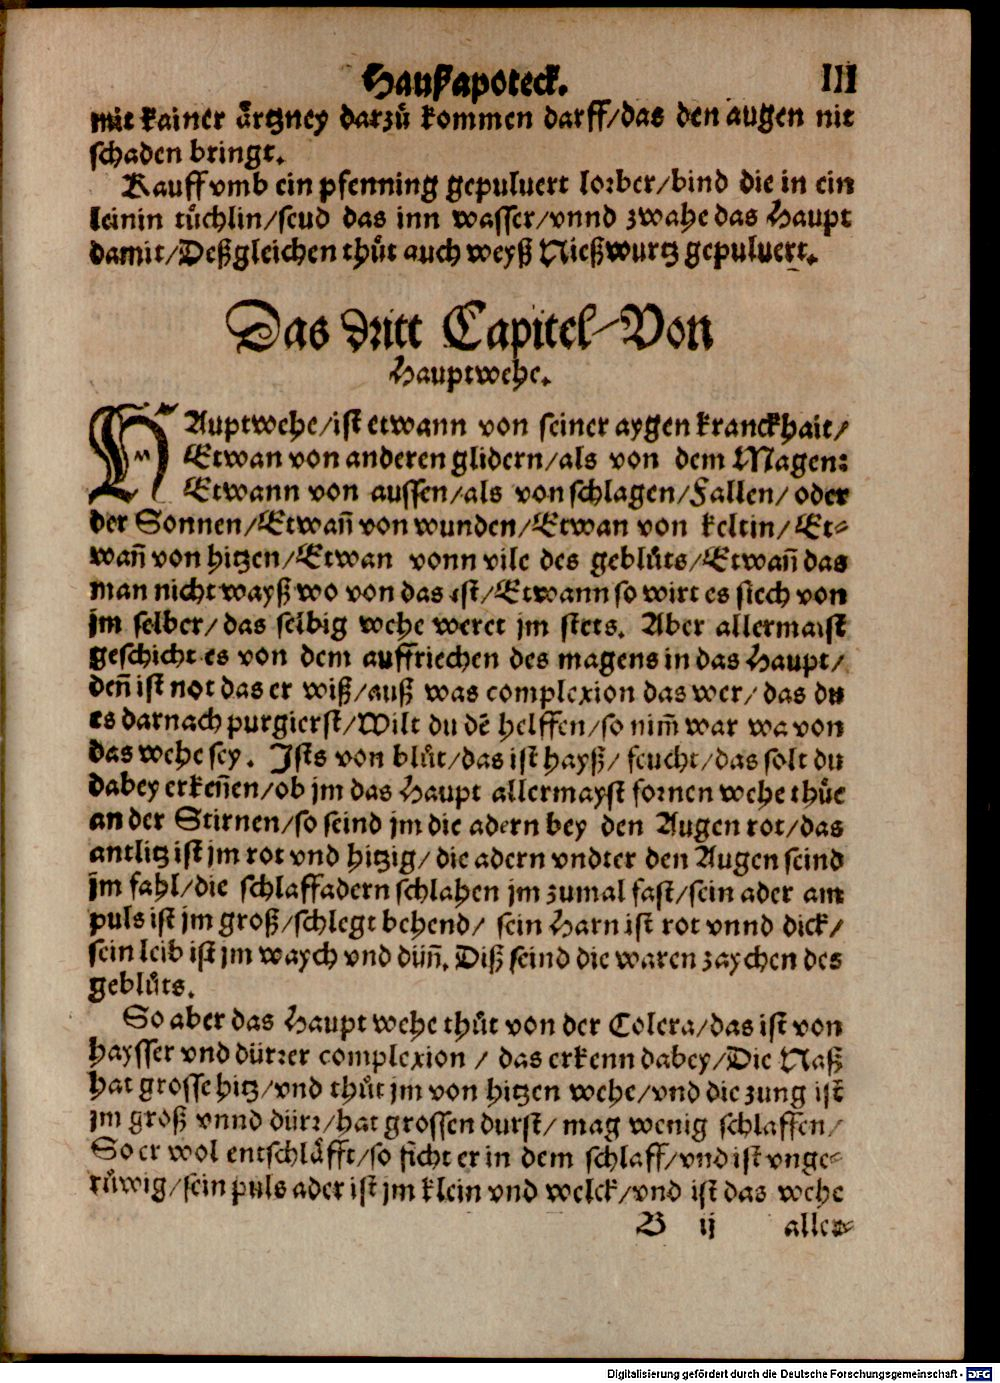 Haußapoteck. III
mit kainer aͤrtzney darzuͦ kommen darff/das den augen nit
schaden bringt.
Kauff vmb ein pfenning gepuluert lorber/bind die in ein
leinin tuͤchlin/seud das inn wasser/vnnd zwahe das Haupt
damit/Deßgleichen thuͦt auch weyß Nießwurtz gepuluert.
Das dritt Capitel/Von
Hauptwehe.
HAuptwehe/ist etwann von seiner aygen kranckhait/
Etwan von anderen glidern/als von dem Magen:
Etwann von aussen/als von schlagen/Fallen/oder
der Sonnen/Etwañ von wunden/Etwan von keltin/Et-
wañ von hitzen/Etwan vonn vile des gebluͤts/Etwañ das
man nicht wayß wo von das ist/Etwann so wirt es siech von
jm selber/das selbig wehe weret jm stets. Aber allermaist
geschicht es von dem auffriechen des magens in das Haupt/
deñ ist not das er wiß/auß was complexion das wer/das du
es darnach purgierst/Wilt du dẽ helffen/so nim̃ war wa von
das wehe sey. Ists von bluͦt/das ist hayß/feucht/das solt du
dabey erkeñen/ob jm das Haupt allermayst fornen wehe thuͤe
an der Stirnen/so seind jm die adern bey den Augen rot/das
antlitz ist jm rot vnd hitzig/die adern vndter den Augen seind
jm fahl/die schlaffadern schlahen jm zumal fast/sein ader am
puls ist jm groß/schlegt behend/sein Harn ist rot vnnd dick/
sein leib ist jm waych vnd düñ. Diß seind die waren zaychen des
gebluͤts.
So aber das Haupt wehe thuͦt von der Colera/das ist von
haysser vnd dürrer complexion/das erkenn dabey/Die Naß
hat grosse hitz/vnd thuͦt jm von hitzen wehe/vnd die zung ist
jm groß vnnd dürr/hat grossen durst/mag wenig schlaffen/
So er wol entschlaͤfft/so ficht er in dem schlaff/vnd ist vnge-
ruͤwig/sein puls ader ist jm klein vnd welck/vnd ist das wehe
B ij aller-
Digitalisierung gefördert durch die Deutsche Forschungsgemeinschaft - DFG